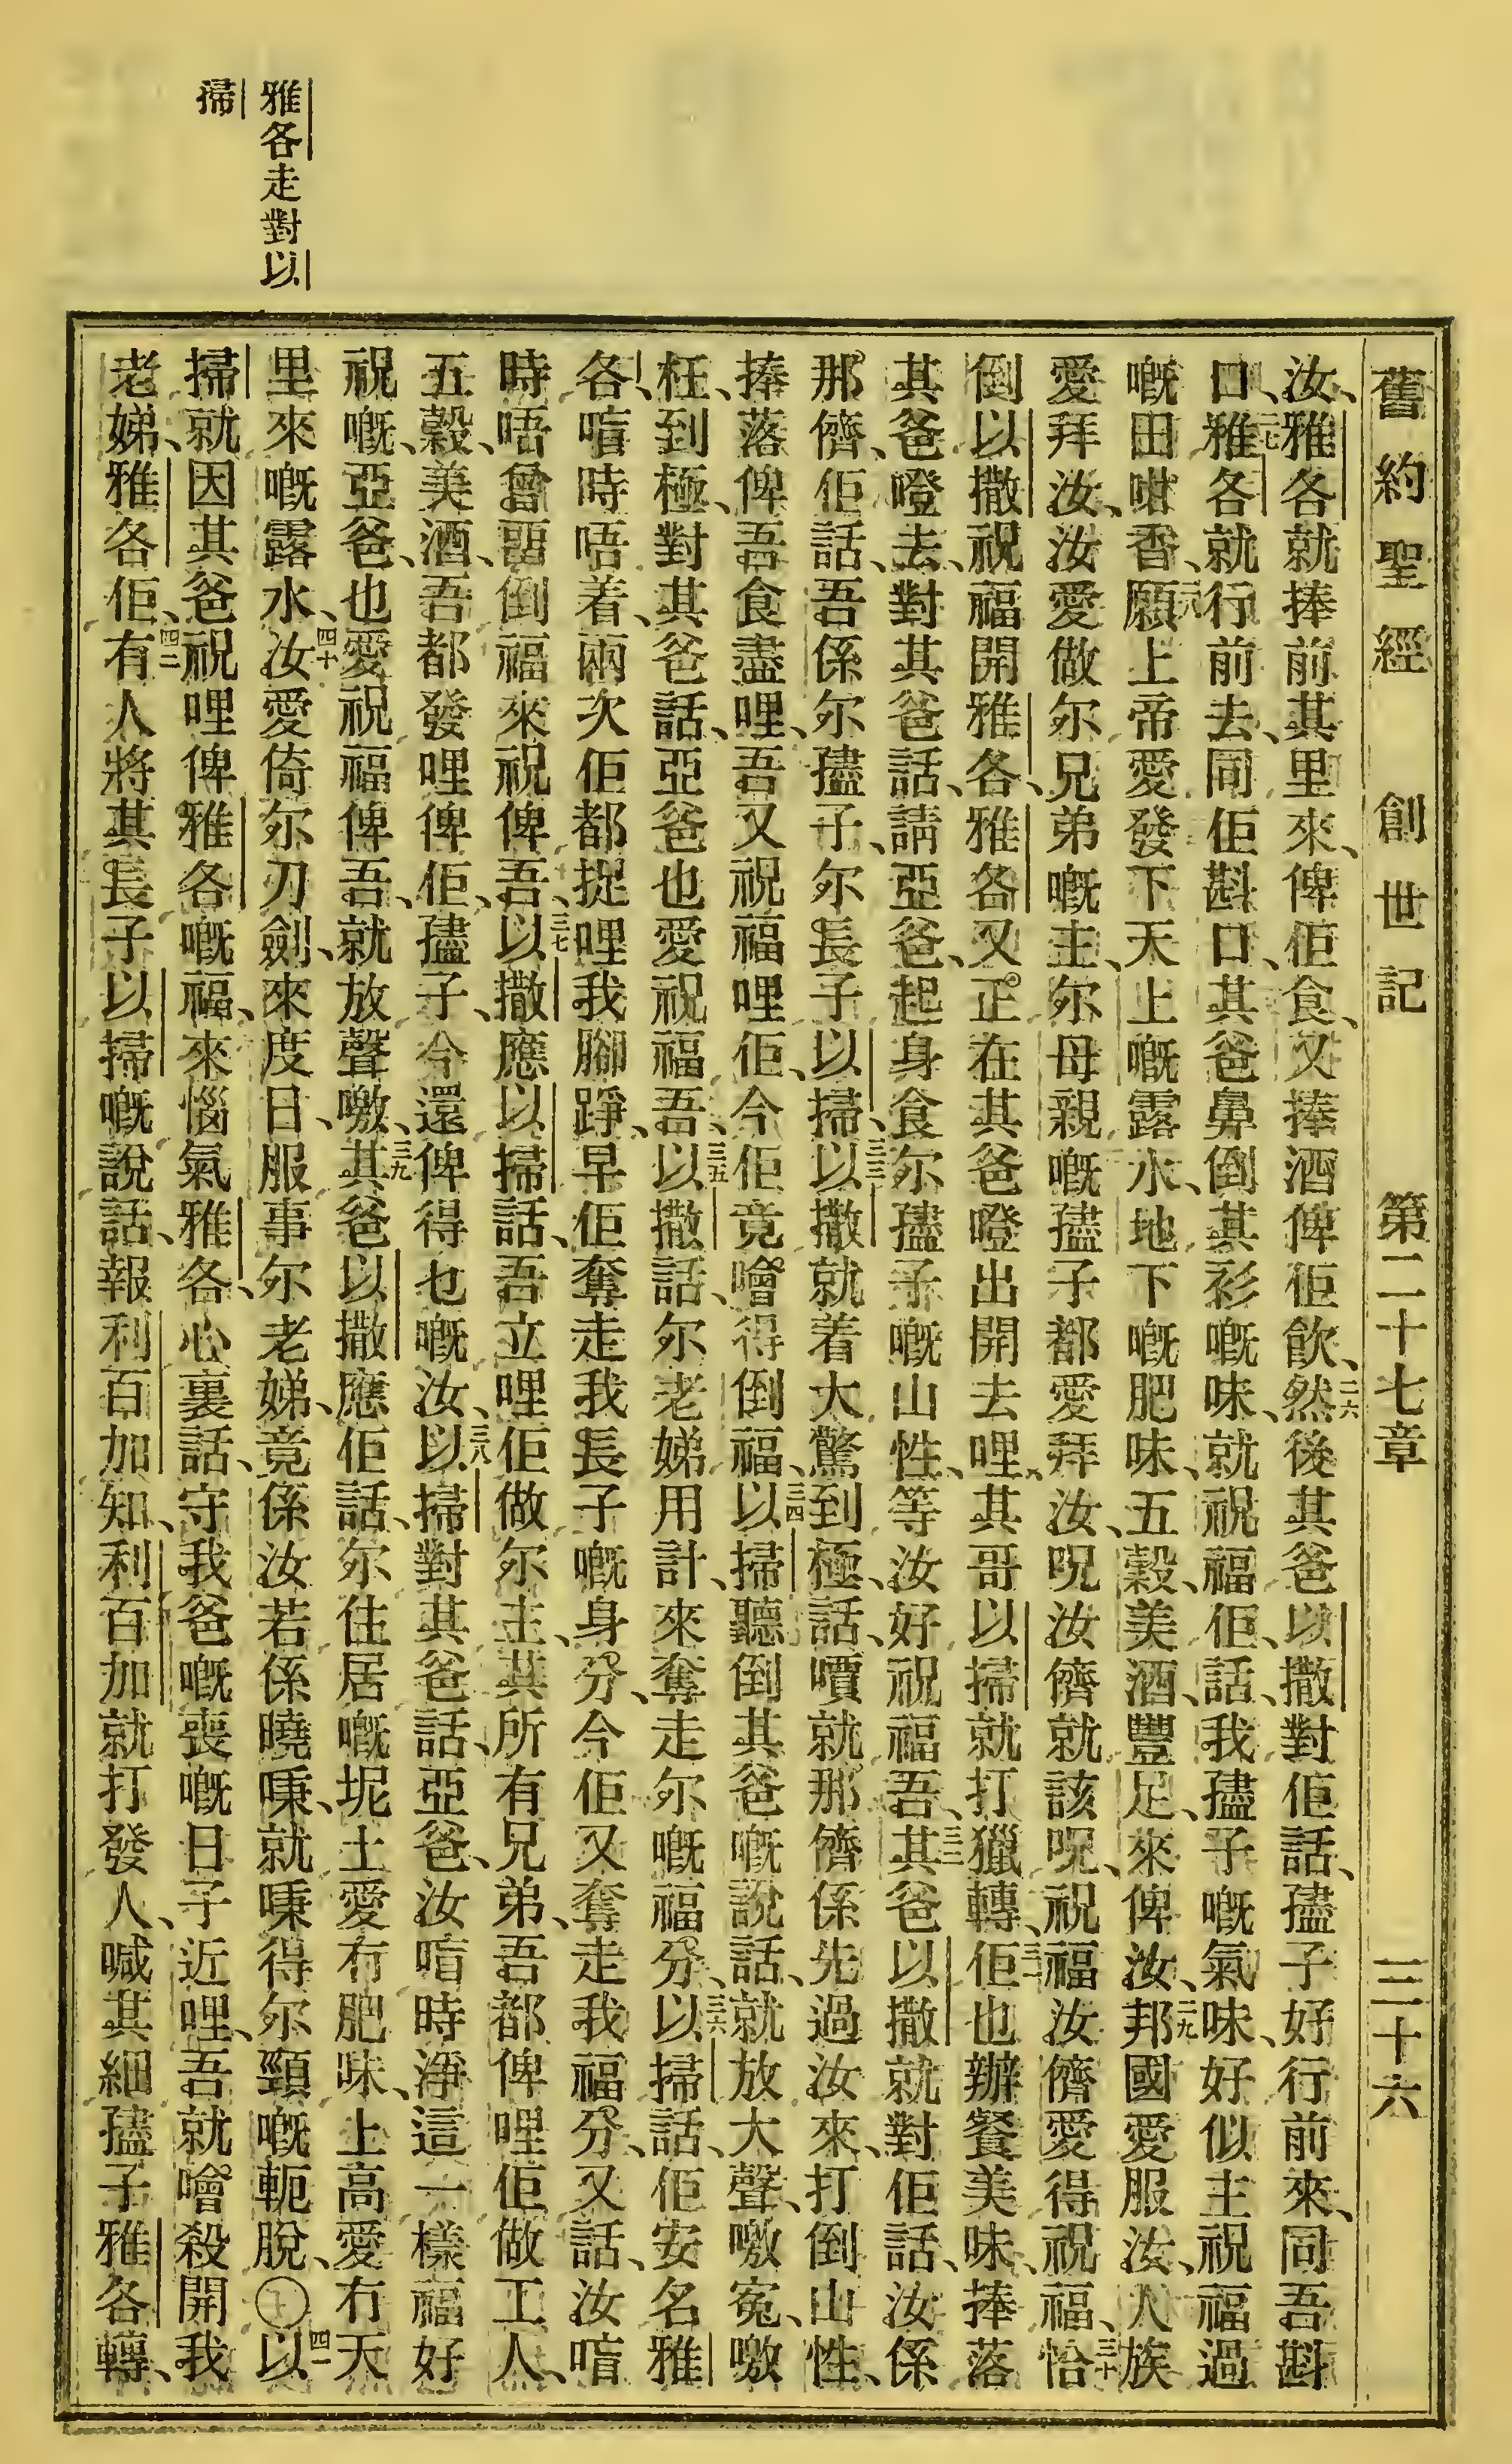 舊約聖經 創世記 第二十七章 三十六
雅各走對以
掃
汝、雅各就捧前其里來、俾佢食、又捧酒俾佢飲、二六然後其爸以撒對佢話、孻子好行前來、同吾斟
口、二七雅各就行前去、同佢斟口、其爸鼻倒其衫嘅味、就祝福佢、話、我孻子嘅氣味、好似主祝福過
嘅田咁香、二八願上帝愛發下天上嘅露水、地下嘅肥味、五穀、美酒、豐足、來俾汝、二九邦國愛服汝、人族
愛拜汝、汝愛做尔兄弟嘅主、尔母親嘅孻子都愛拜汝、呪汝儕就該呪、祝福汝儕愛得祝福、三十恰
倒以撒祝福開雅各、雅各又正在其爸㬿出開去哩、其哥以掃就打獵轉、三一佢也辦餐美味、捧落
其爸㬿去、對其爸話、請亞爸、起身食尔孻子嘅山性、等汝好祝福吾、三二其爸以撒就對佢話、汝係
那儕、佢話、吾係尔孻子、尔長子以掃、三三以撒就着大驚到極、話、嘪就那儕係先過汝來、打倒山性、
捧落俾吾食盡哩、吾又祝福哩佢、今佢竟噲得倒福、三四以掃聽倒其爸嘅說話、就放大聲、噭寃、噭
枉、到極、對其爸話、亞爸也愛祝福吾、三五以撒話、尔老娣用計、來奪走尔嘅福分、三六以掃話、佢安名雅
各、喑時唔着、兩次佢都捉哩我腳踭、早佢奪走我長子嘅身分、今佢又奪走我福分、又話、汝喑
時唔曾畱倒福來祝俾吾、三七以撒應以掃話、吾立哩佢做尔主、其所有兄弟、吾都俾哩佢做工人、
五穀、美酒、吾都發哩俾佢、孻子、今還俾得乜嘅汝、三八以掃對其爸話、亞爸、汝喑時淨這一樣福好
祝嘅、亞爸、也愛祝福俾吾、就放聲噭、三九其爸以撒應佢話、尔住居嘅坭土愛冇肥味、上高愛冇天
里來嘅露水、四十汝愛倚尔刃劍、來度日、服事尔老娣、竟係汝若係曉㖼、就㖼得尔頸嘅軛脫、〇四一以
掃就因其爸祝哩俾雅各嘅福、來惱氣雅各、心裏話、守我爸嘅喪嘅日子近哩、吾就噲殺開我
老娣、雅各佢、四二有人將其長子以掃嘅說話、報利百加知、利百加就打發人、喊其細孻子雅各轉、